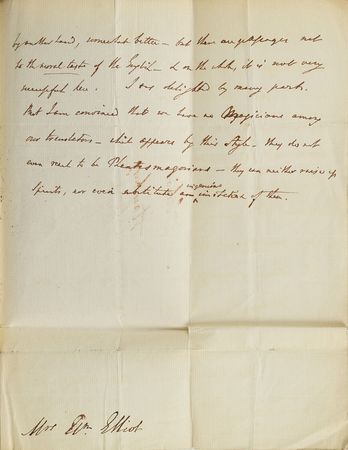 by another hand, somewhat better – but there are passages not
to the moral taste of the English – & on the whole, it is not very
successful here. I am delighted by many parts.
But I am convinced that we have no Magicians among
our translators – which appears by this style – they do not
even need to be Phantasmagorians – they can neither raise up
spirits, nor even substitute an imitation of them.
ingenious
Mrs Elliot